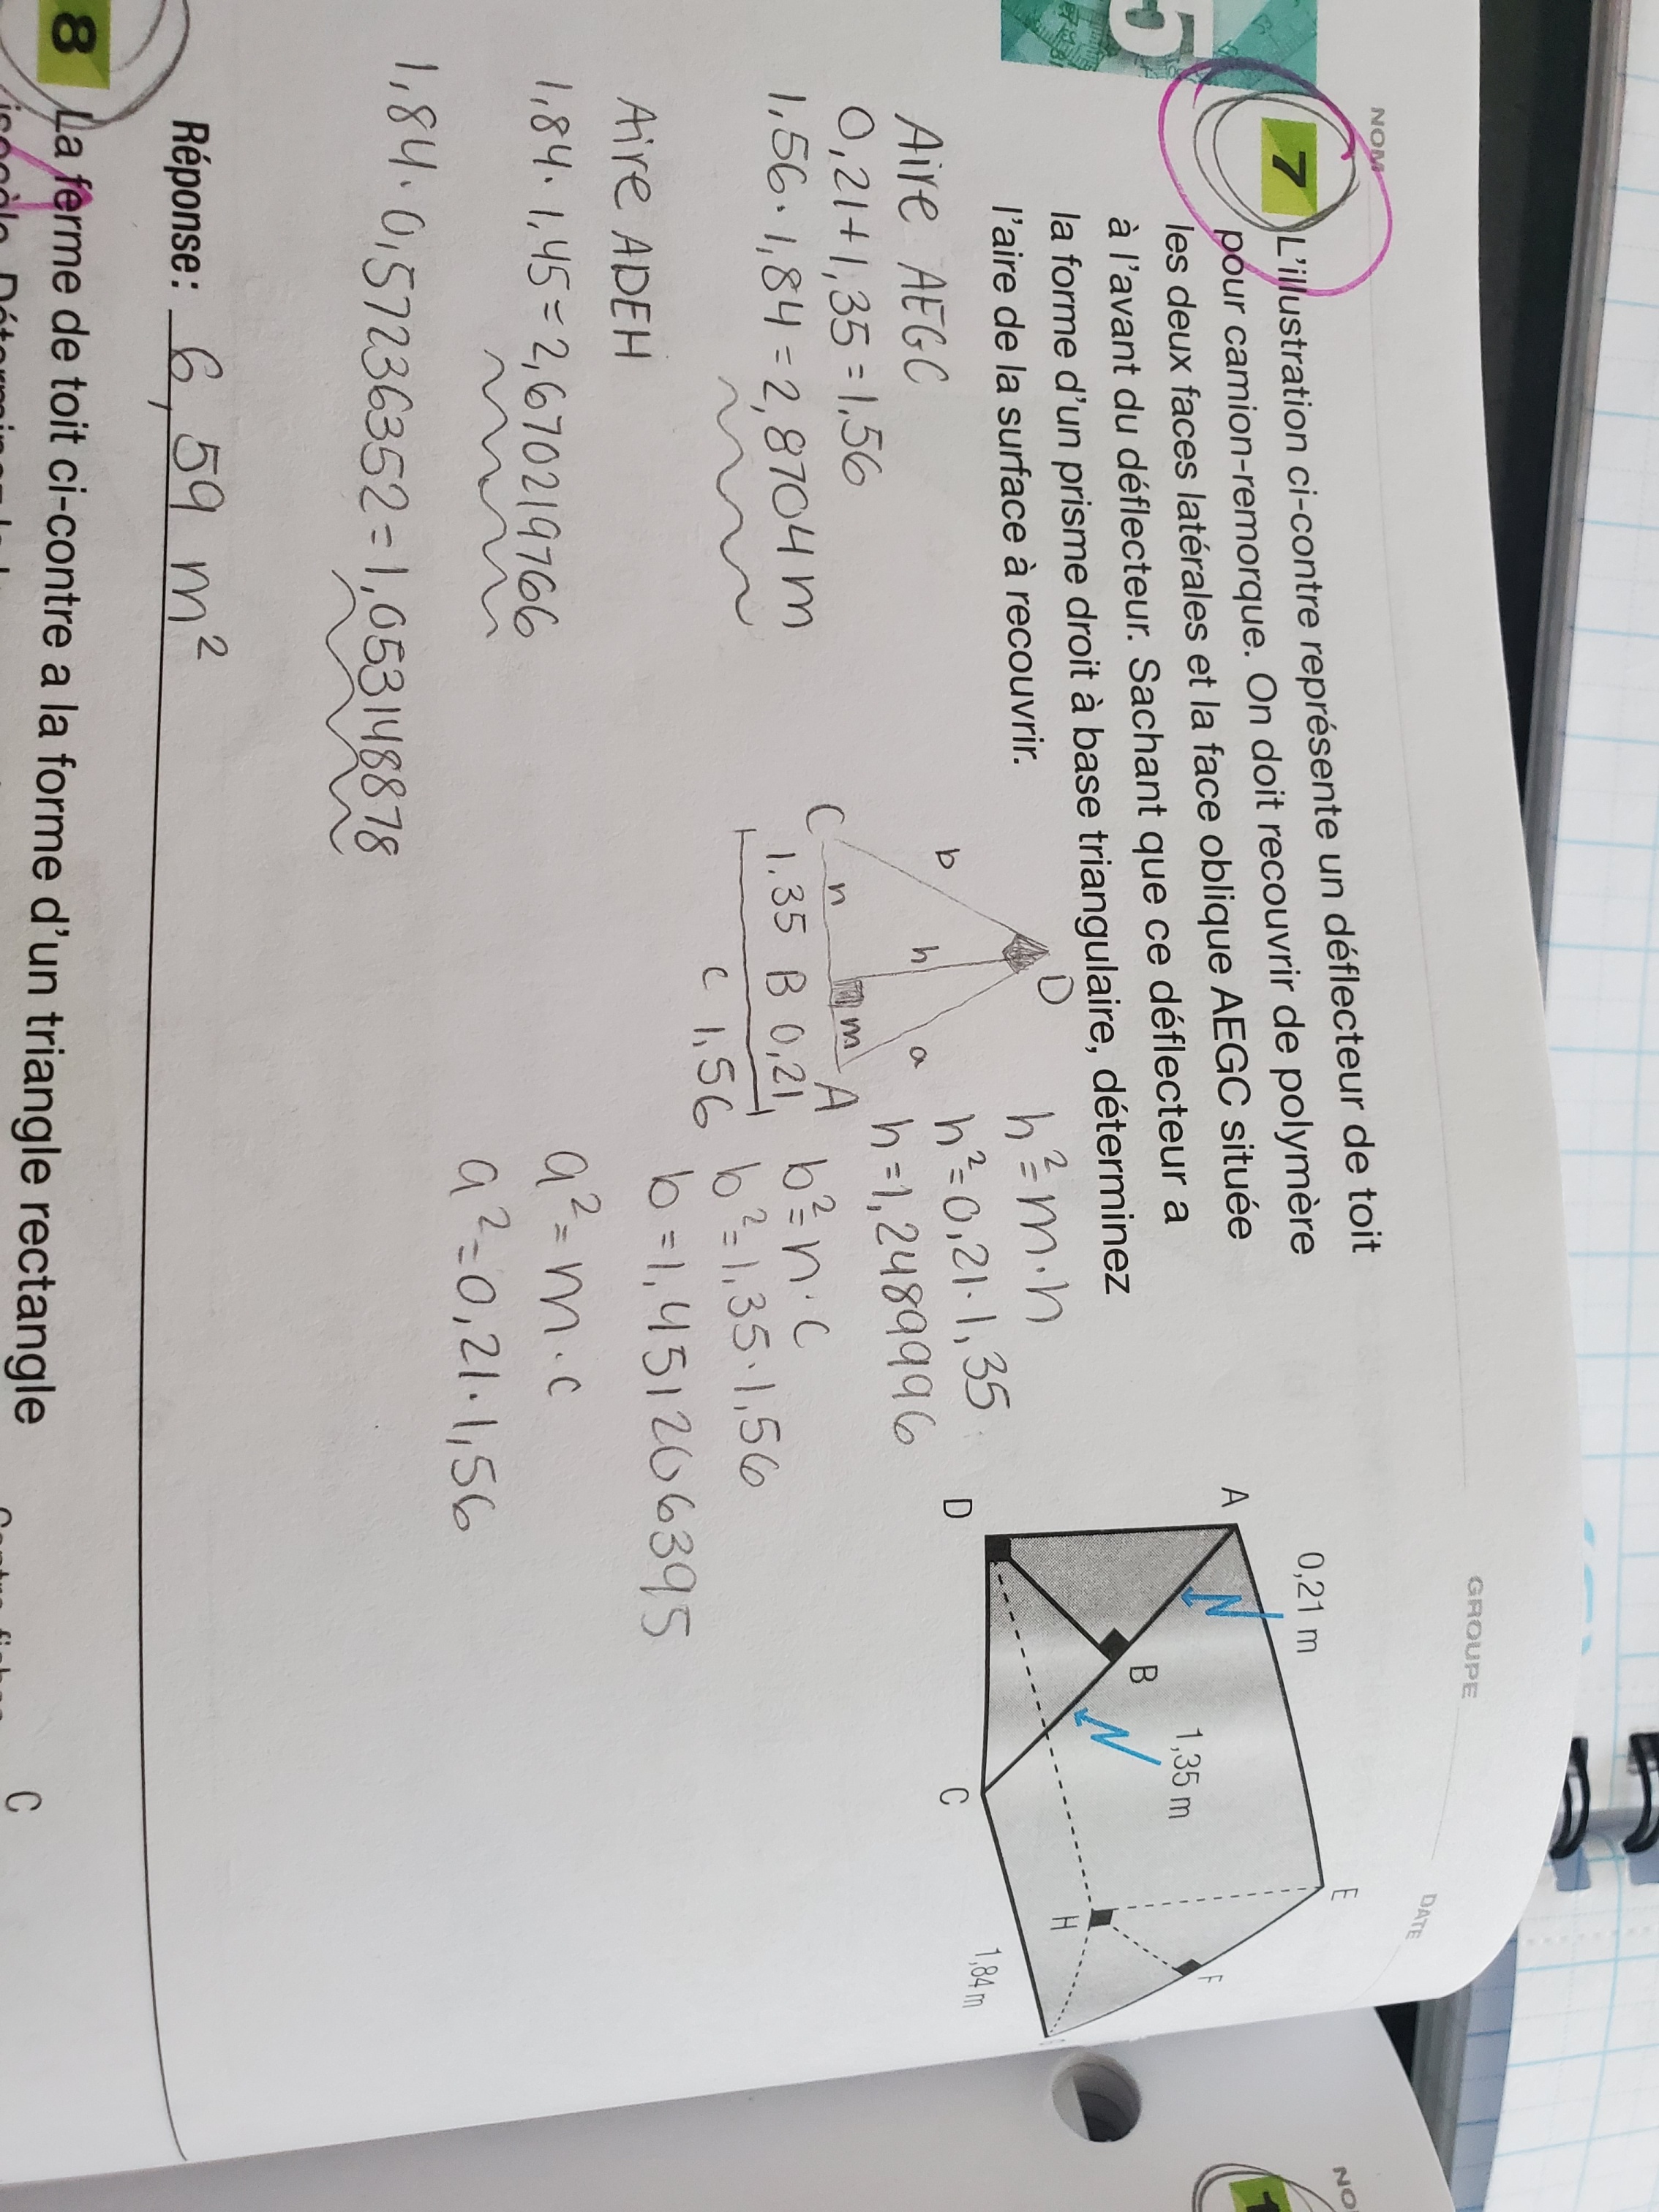 NOM
GROUPE
DATE
5
7
L'illustration ci-contre représente un déflecteur de toit
pour camion-remorque. On doit recouvrir de polymère
les deux faces latérales et la face oblique AEGC située
à l'avant du déflecteur. Sachant que ce déflecteur a
la forme d'un prisme droit à base triangulaire, déterminez
l'aire de la surface à recouvrir.
A
0,21 m
E
B
1,35 m
F
D
C
H
1,84 m
Aire AEGC
0,21+1,35=1,56
1,56·1,84=2,8704m
Aire ADEH
1,84·1,45=2,670219766
1,84·0,57236352=1,053148878
D
b
h
a
C
n
m
A
1,35 B 0,21
c 1,56
h²=m·n
h²=0,21·1,35
h=1,2489996
b²=n·c
b²=1,35·1,56
b=1,451206395
a²=m·c
a²=0,21·1,56
Réponse: 6,59 m²
8
La ferme de toit ci-contre a la forme d'un triangle rectangle
C